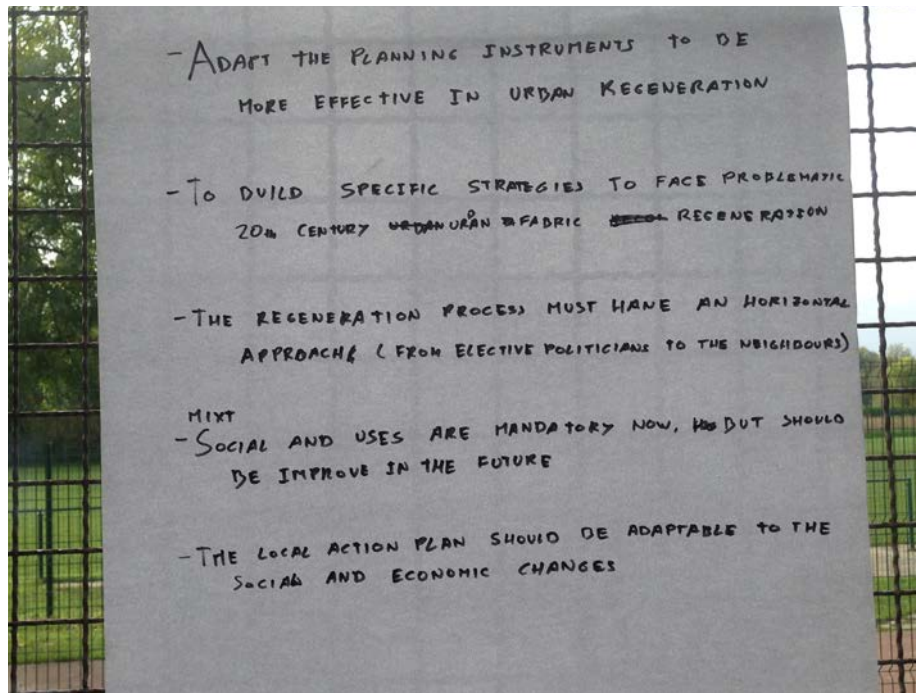 - ADAPT THE PLANNING INSTRUMENTS TO BE
MORE EFFECTIVE IN URBAN REGENERATION
- TO BUILD SPECIFIC STRATEGIES TO FACE PROBLEMATIC
20th CENTURY URBAN FABRIC REGENERATION
- THE REGENERATION PROCESS MUST HANE AN HORIZONTAL
APPROACH (FROM ELECTIVE POLITICIANS TO THE NEIGHBOURS)
MIXT
- SOCIAL AND USES ARE MANDATORY NOW, BUT SHOULD
BE IMPROVE IN THE FUTURE
- THE LOCAL ACTION PLAN SHOULD BE ADAPTABLE TO THE
SOCIAL AND ECONOMIC CHANGES